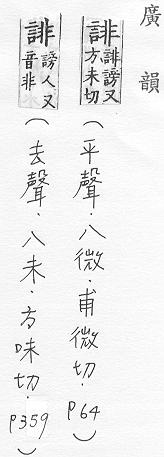 廣韻
誹 誹謗又方未切 (平聲.八微.甫微切. P64)
誹 謗人又音非 (去聲.八未.方味切. P359)